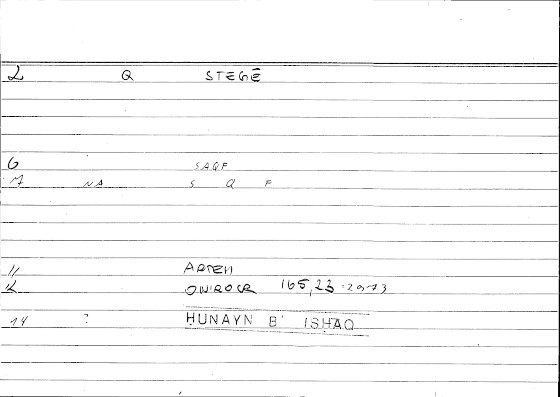 2 Q STEGĒ
6 SAQF
7 NA S Q F
11 ARTEM
12 ONIROCR 165,23
14 ? ḤUNAYN B' ISḤAQ